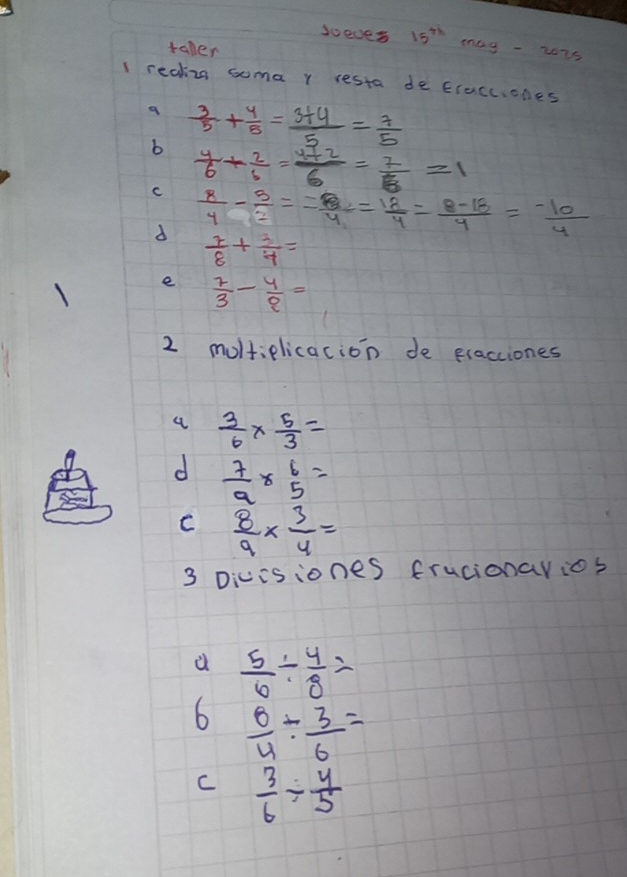 Jueves 15th may - 2025
taller
1 realiza suma y resta de fracciones
a 3/5 + 4/5 = 3+4/5 = 7/5
b 4/6 + 2/6 = 4+2/6 = 7/6 = 1
c 8/4 - 9/2 = 18/4 = 8-18/4 = -10/4
d 7/8 + 3/4 =
e 7/3 - 4/9 =
2 multiplicación de fracciones
a 3/6 x 5/3 =
d 7/9 x 6/5 =
c 8/9 x 3/4 =
3 Divisiones frucionarios
a 5/6 ÷ 4/8 =
b 8/4 ÷ 3/6 =
c 3/6 ÷ 4/5